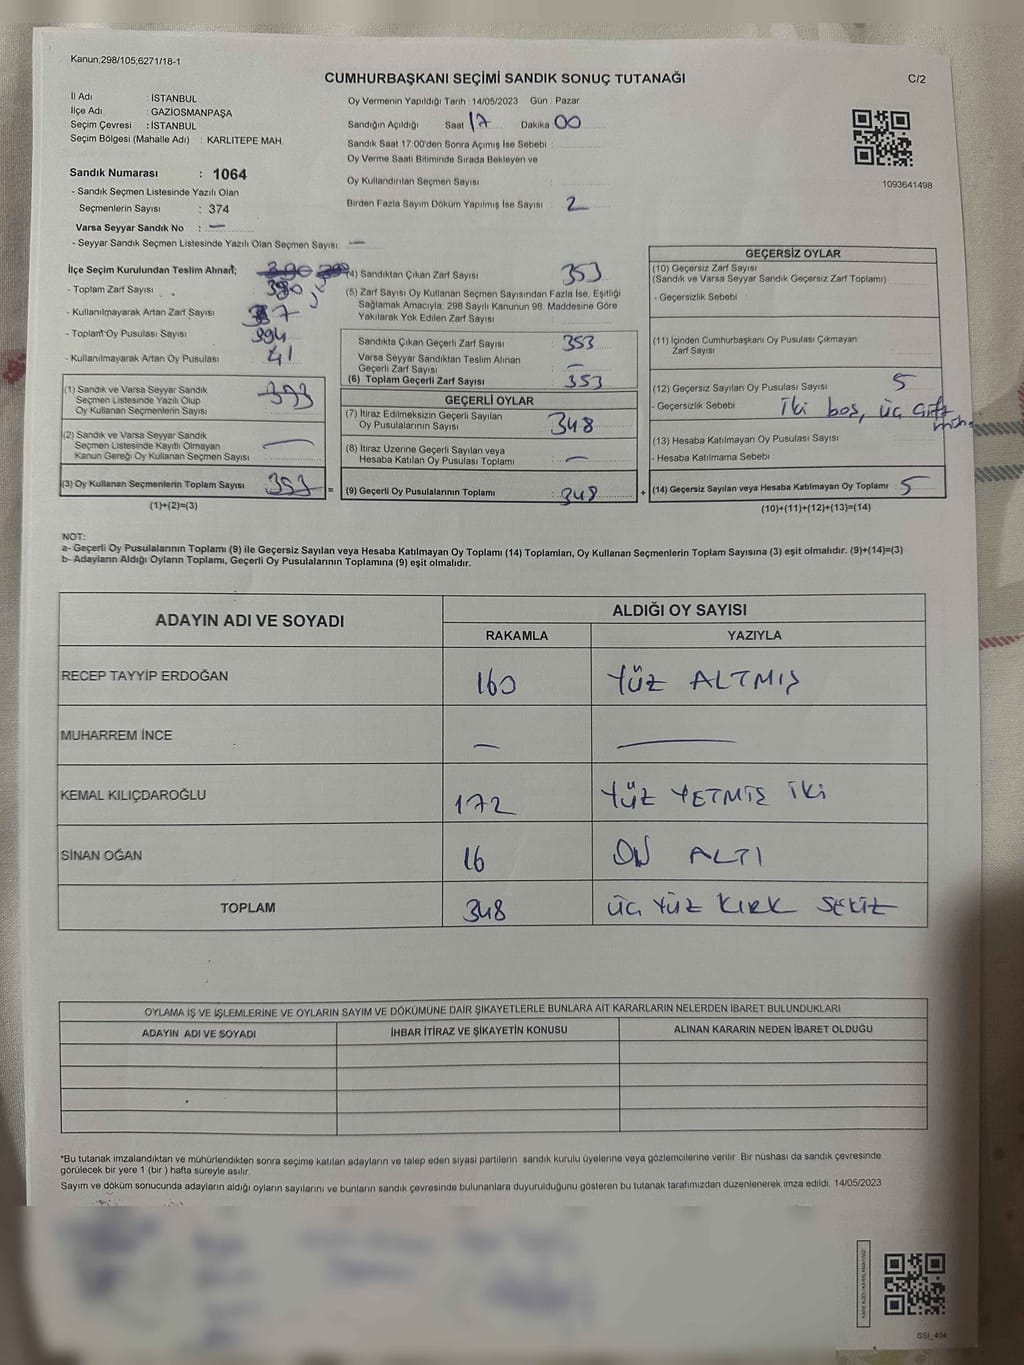 Kanun;298/105;6271/18-1
CUMHURBAŞKANI SEÇİMİ SANDIK SONUÇ TUTANAĞI
C/2
İl Adı : İSTANBUL
İlçe Adı : GAZİOSMANPAŞA
Seçim Çevresi : İSTANBUL
Seçim Bölgesi (Mahalle Adı) : KARLITEPE MAH.
Oy Vermenin Yapıldığı Tarih : 14/05/2023 Gün : Pazar
Sandığın Açıldığı Saat 17 Dakika 00
Sandık Saat 17:00'den Sonra Açımış İse Sebebi :
Oy Verme Saati Bitiminde Sırada Bekleyen ve
Oy Kullandırılan Seçmen Sayısı :
Birden Fazla Sayım Döküm Yapılmış İse Sayısı : 2
1093641498
Sandık Numarası : 1064
- Sandık Seçmen Listesinde Yazılı Olan
Seçmenlerin Sayısı : 374
Varsa Seyyar Sandık No : —
- Seyyar Sandık Seçmen Listesinde Yazılı Olan Seçmen Sayısı: —
İlçe Seçim Kurulundan Teslim Alınan;
- Toplam Zarf Sayısı : 390
- Kullanılmayarak Artan Zarf Sayısı : 37
- Toplam Oy Pusulası Sayısı : 394
- Kullanılmayarak Artan Oy Pusulası : 41
(1) Sandık ve Varsa Seyyar Sandık
Seçmen Listesinde Yazılı Olup
Oy Kullanan Seçmenlerin Sayısı
(2) Sandık ve Varsa Seyyar Sandık
Seçmen Listesinde Kayıtlı Olmayan
Kanun Gereği Oy Kullanan Seçmen Sayısı —
(3) Oy Kullanan Seçmenlerin Toplam Sayısı 353 =
(1)+(2)=(3)
(4) Sandıktan Çıkan Zarf Sayısı 353
(5) Zarf Sayısı Oy Kullanan Seçmen Sayısından Fazla İse, Eşitliği
Sağlamak Amacıyla, 298 Sayılı Kanunun 98. Maddesine Göre
Yakılarak Yok Edilen Zarf Sayısı
Sandıkta Çıkan Geçerli Zarf Sayısı : 353
Varsa Seyyar Sandıktan Teslim Alınan
Geçerli Zarf Sayısı : —
(6) Toplam Geçerli Zarf Sayısı : 353
GEÇERLİ OYLAR
(7) İtiraz Edilmeksizin Geçerli Sayılan
Oy Pusulalarının Sayısı : 348
(8) İtiraz Üzerine Geçerli Sayılan veya
Hesaba Katılan Oy Pusulası Toplamı : —
(9) Geçerli Oy Pusulalarının Toplamı : 348 +
GEÇERSİZ OYLAR
(10) Geçersiz Zarf Sayısı
(Sandık ve Varsa Seyyar Sandık Geçersiz Zarf Toplamı)
- Geçersizlik Sebebi :
(11) İçinden Cumhurbaşkanı Oy Pusulası Çıkmayan
Zarf Sayısı
(12) Geçersiz Sayılan Oy Pusulası Sayısı : 5
- Geçersizlik Sebebi : iki boş, üç çift
(13) Hesaba Katılmayan Oy Pusulası Sayısı :
- Hesaba Katılmama Sebebi :
(14) Geçersiz Sayılan veya Hesaba Katılmayan Oy Toplamı : 5
(10)+(11)+(12)+(13)=(14)
NOT:
a- Geçerli Oy Pusulalarının Toplamı (9) ile Geçersiz Sayılan veya Hesaba Katılmayan Oy Toplamı (14) Toplamları, Oy Kullanan Seçmenlerin Toplam Sayısına (3) eşit olmalıdır. (9)+(14)=(3)
b- Adayların Aldığı Oyların Toplamı, Geçerli Oy Pusulalarının Toplamına (9) eşit olmalıdır.
ADAYIN ADI VE SOYADI
ALDIĞI OY SAYISI
RAKAMLA YAZIYLA
RECEP TAYYİP ERDOĞAN 160 YÜZ ALTMIŞ
MUHARREM İNCE — —
KEMAL KILIÇDAROĞLU 172 YÜZ YETMİŞ İKİ
SİNAN OĞAN 16 ON ALTI
TOPLAM 348 ÜÇ YÜZ KIRK SEKİZ
OYLAMA İŞ VE İŞLEMLERİNE VE OYLARIN SAYIM VE DÖKÜMÜNE DAİR ŞİKAYETLERLE BUNLARA AİT KARARLARIN NELERDEN İBARET BULUNDUKLARI
ADAYIN ADI VE SOYADI İHBAR İTİRAZ VE ŞİKAYETİN KONUSU ALINAN KARARIN NEDEN İBARET OLDUĞU
*Bu tutanak imzalandıktan ve mühürlendikten sonra seçime katılan adayların ve talep eden siyasi partilerin sandık kurulu üyelerine veya gözlemcilerine verilir. Bir nüshası da sandık çevresinde
görülecek bir yere 1 (bir) hafta süreyle asılır.
Sayım ve döküm sonucunda adayların aldığı oyların sayılarını ve bunların sandık çevresinde bulunanlara duyurulduğunu gösteren bu tutanak tarafımızdan düzenlenerek imza edildi. 14/05/2023
SSI_404